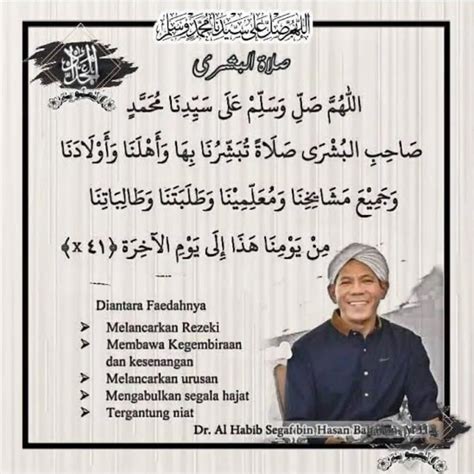 اللهم صل على سيدنا محمد وسلم
صلاة البشرى
اللّٰهُمَّ صَلِّ وَسَلِّمْ عَلَى سَيِّدِنَا مُحَمَّدٍ
صَاحِبِ الْبُشْرَى صَلَاةً تُبَشِّرُنَا بِهَا وَأَهْلَنَا وَأَوْلَادَنَا
وَجَمِيْعَ مَشَايِخِنَا وَمُعَلِّمِيْنَا وَطَلَبَتَنَا وَطَالِبَاتِنَا
مِنْ يَوْمِنَا هَذَا إِلَى يَوْمِ الْآخِرَة ﴿٤١ x﴾
Diantara Faedahnya
➤ Melancarkan Rezeki
➤ Membawa Kegembiraan
dan kesenangan
➤ Melancarkan urusan
➤ Mengabulkan segala hajat
➤ Tergantung niat
Dr. Al Habib Segaf bin Hasan